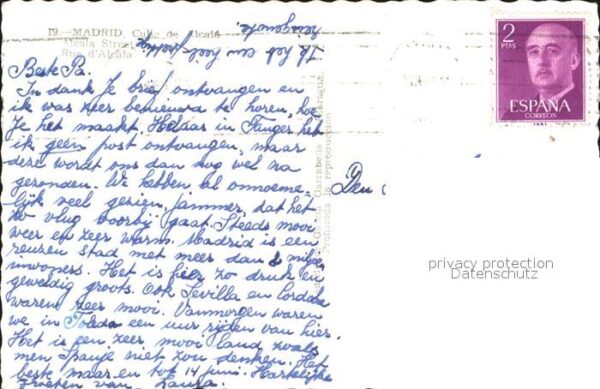 19.—MADRID. Calle de Alcalá
Alcala Street
Rue d'Alcala
2
PTAS
ESPAÑA
CORREOS
Beste Pa.
In dank je brief ontvangen en
ik was zeer benieuwd te horen, hoe
je het maakt, Helaas in Tanger het
ik geen post ontvangen, maar
deze wordt ons dan nog wel na
gezonden. We hebben al onnoeme-
lijk veel gezien, jammer, dat het
zo vlug voorbij gaat. Steeds mooi
weer en zeer warm. Madrid is een
reuzen stad met meer dan 2 miljoen
inwoners. Het is hier zo druk en
geweldig groots. Ook Sevilla en Cordoba
waren zeer mooi. Vanmorgen waren
we in Toledo een uur rijden van hier.
Het is een zeer mooi land, zoals
men Spanje niet zou denken. Het
beste maar en tot 14 juni. Hartelijke
groeten van
Den
Prohibida la reproducción
privacy protection
Datenschutz